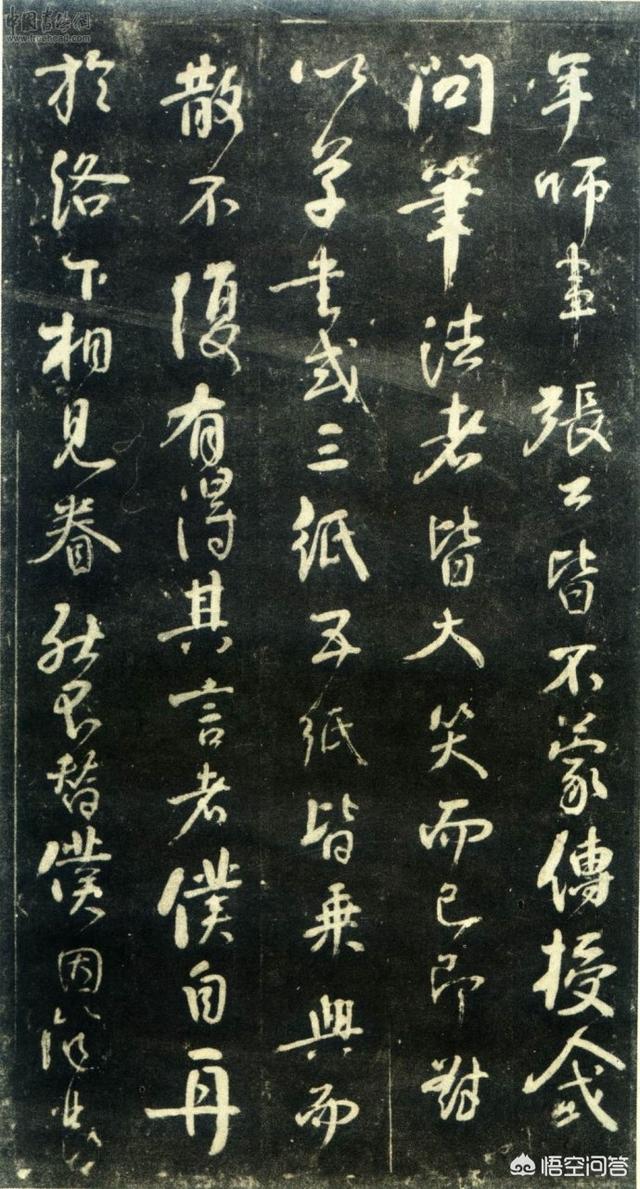 年師事張公皆不蒙傳授人或
問筆法者皆大笑而已即對
以草書或三紙五紙皆乘興而
散不復有得其言者僕自再
於洛下相見眷然不替僕因
悟空问答